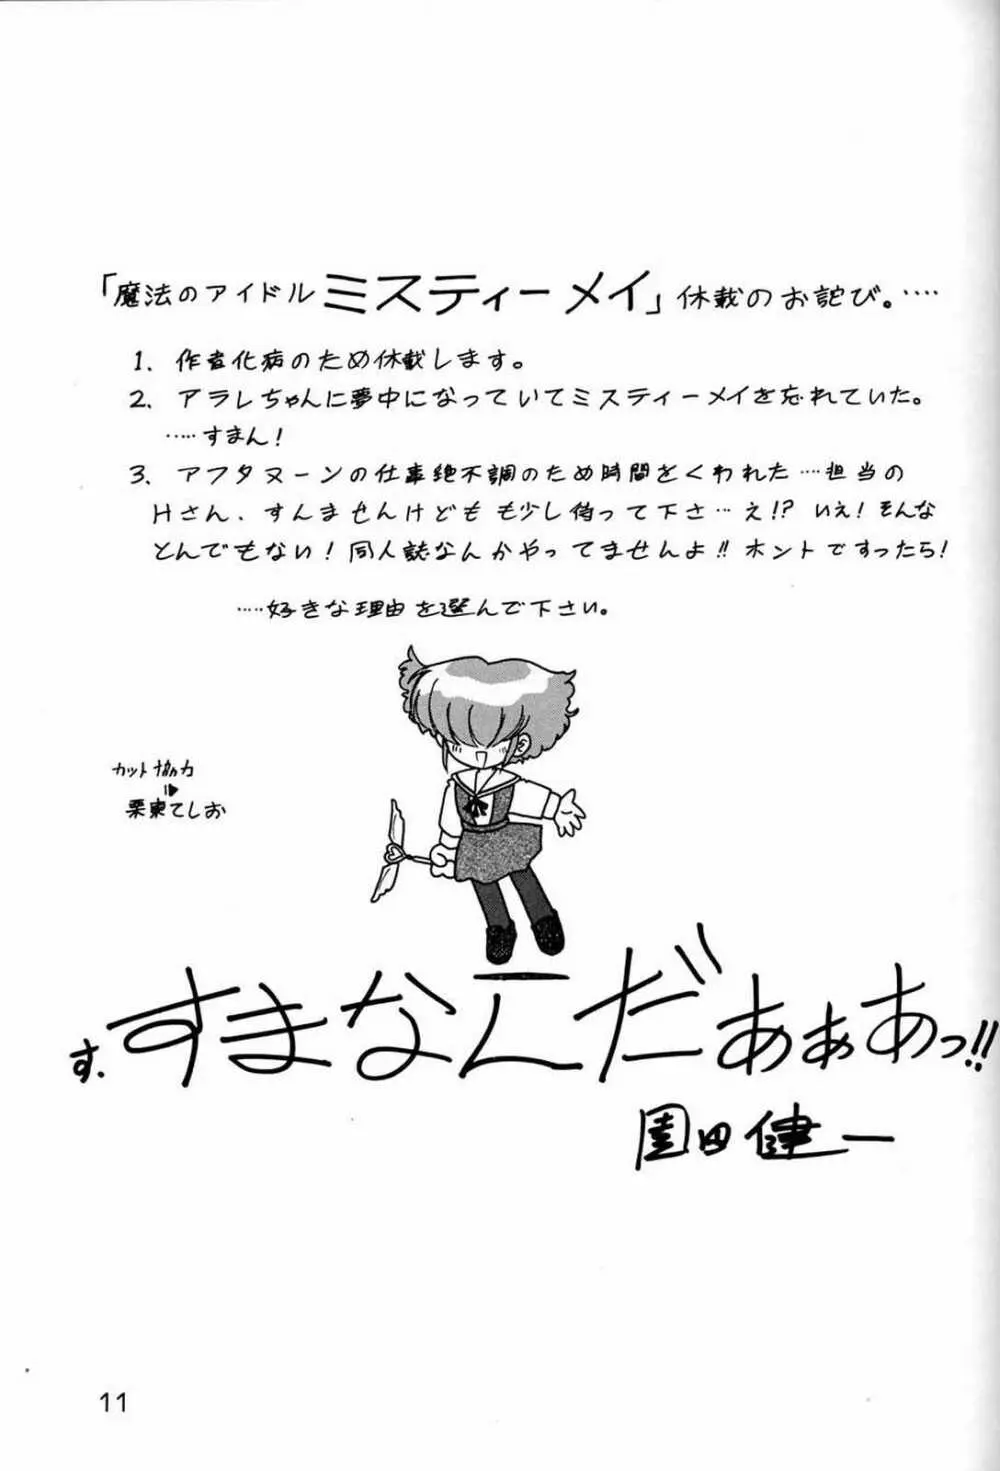 「魔法のアイドルミスティーメイ」休載のお詫び。‥‥
1. 作者化病のため休載します。
2. アラレちゃんに夢中になっていてミスティーメイを忘れていた。
‥‥すまん!
3. アフタヌーンの仕事絶不調のため時間をくわれた‥‥担当の
Hさん、すんませんけどももう少し待って下さ‥‥え!? いえ! そんな
とんでもない! 同人誌なんかやってませんよ!! ホントですったら!
‥‥好きな理由を選んで下さい。
カット協力
栗東てしお
す. すまなーんだあぁあっ!!
園田健一
11